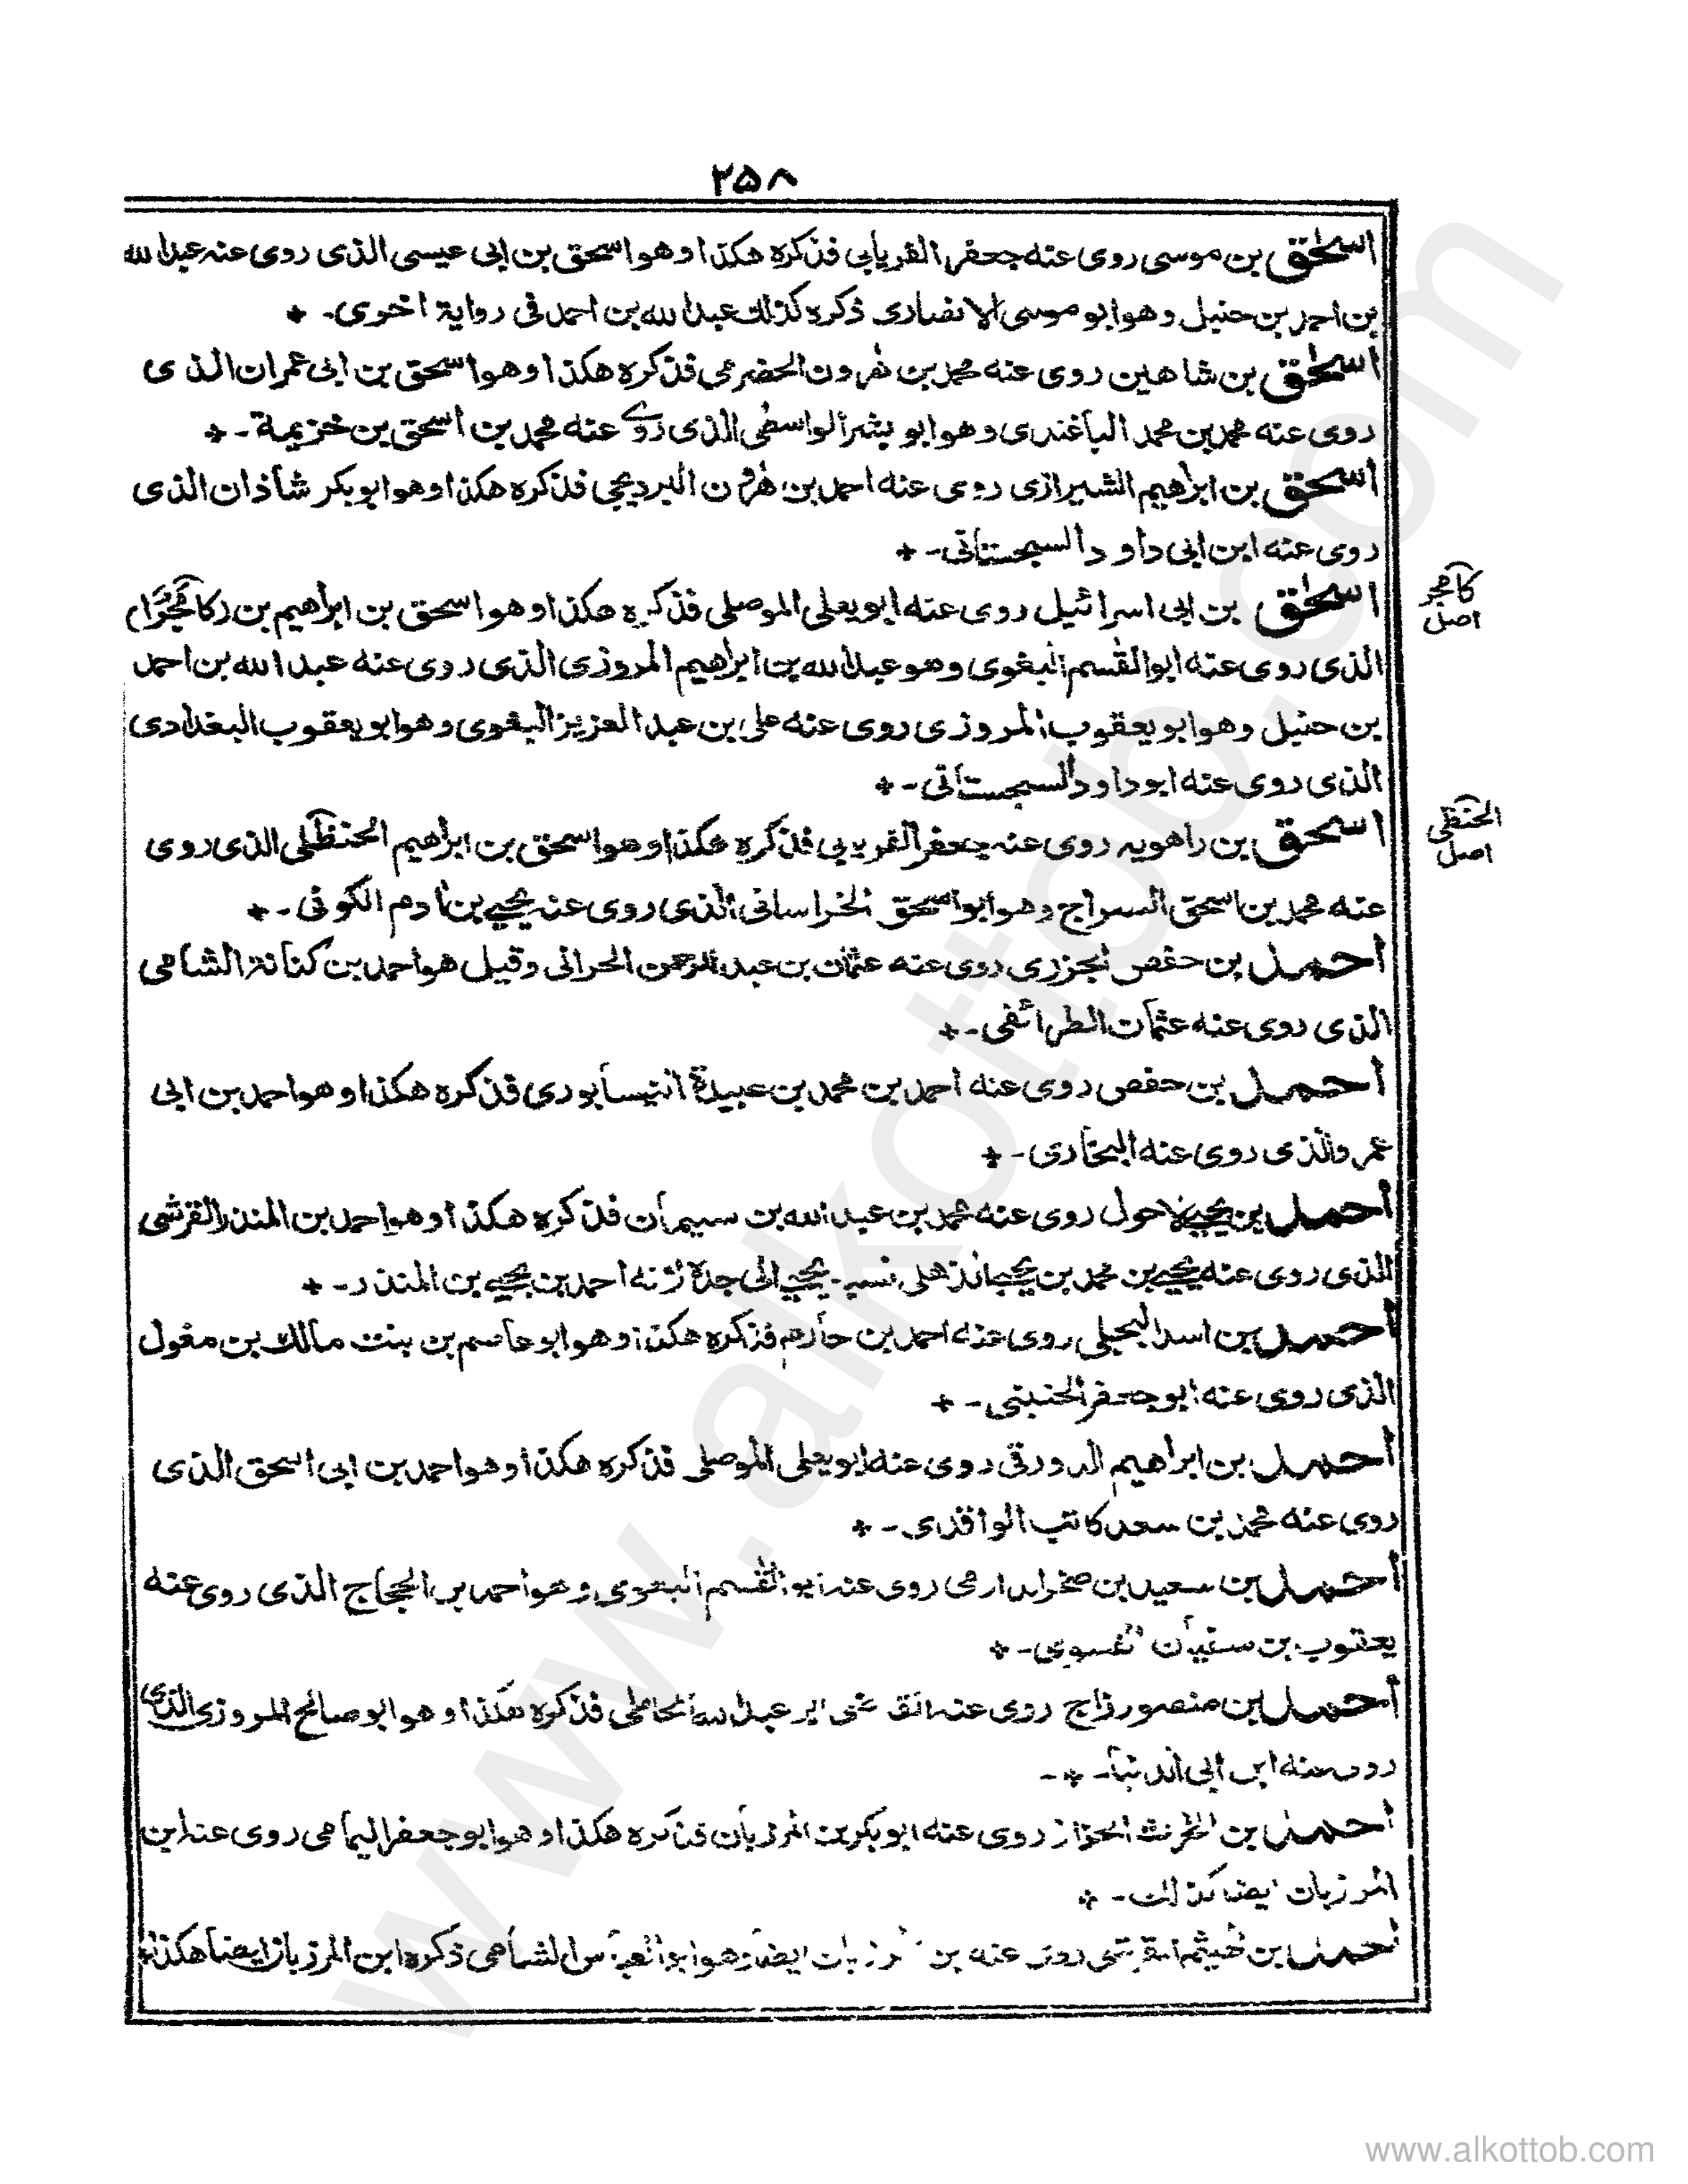 ٢٥٨
اسحٰق بن موسى روى عنه جعفر الفريابي فذكره هكذا وهو اسحق بن ابي عيسى الذى روى عنه عبد الله
بن احمد بن حنبل وهو ابو موسى الانصارى ذكره كذلك عبد الله بن احمد فى رواية اخرى۔ ٭
اسحٰق بن شاهين روى عنه محمد بن هٰرون الحضرمى فذكره هكذا وهو اسحق بن ابى عمران الذى
روى عنه محمد بن محمد الباغندى وهو ابو بشر الواسطى الذى روى عنه محمد بن اسحق بن خزيمة۔ ٭
اسحٰق بن ابراهيم الشيرازى روى عنه احمد بن هٰرون البرديجى فذكره هكذا وهو ابو بكر شاذان الذى
روى عنه ابن ابى داود السجستانى۔ ٭
اسحٰق بن ابى اسرائيل روى عنه ابو يعلى الموصلى فذكره هكذا وهو اسحق بن ابراهيم بن (كامَجْرَا)
كامجر
اصل
الذى روى عنه ابو القٰسم البغوى وهو عبد الله بن ابراهيم المروزى الذى روى عنه عبد الله بن احمد
بن حنبل وهو ابو يعقوب المروزى روى عنه على بن عبد العزيز البغوى وهو ابو يعقوب البغدادى
الذى روى عنه ابو داود السجستانى۔ ٭
اسحق بن راهويه روى عنه جعفر الفريابى فذكره هكذا وهو اسحق بن ابراهيم الحنظلى الذى روى
الحنظلى
اصل
عنه محمد بن اسحق السراج وهو ابو اسحق الخراسانى الذى روى عنه يحيى بن ادم الكوفى۔ ٭
احمد بن حفص الجزرى روى عنه عثمان بن عبد الرحمن الحرانى وقيل هو احمد بن كنانة الشامى
الذى روى عنه عثمان الطرائفى۔ ٭
احمد بن حفص روى عنه احمد بن محمد بن عبيدة النيسابورى فذكره هكذا وهو احمد بن ابى
عمر والذى روى عنه البخارى۔ ٭
احمد بن يحيى الاحول روى عنه محمد بن عبد الله بن سليمان فذكره هكذا وهو احمد بن المنذر القرشى
الذى روى عنه يحيى بن محمد بن يحيى الذهلى نسبه يحيى الى جده لانه احمد بن يحيى بن المنذر۔ ٭
احمد بن اسد البجلى روى عنه احمد بن حازم فذكره هكذا وهو ابو عاصم بن بنت مالك بن مغول
الذى روى عنه ابو جعفر الحنينى۔ ٭
احمد بن ابراهيم الدورقى روى عنه ابو يعلى الموصلى فذكره هكذا وهو احمد بن ابى اسحق الذى
روى عنه محمد بن سعد كاتب الواقدى۔ ٭
احمد بن سعيد بن صخر الدارمى روى عنه ابو القٰسم البغوى وهو احمد بن الحجاج الذى روى عنه
يعقوب بن سفيان الفسوى۔ ٭
احمد بن منصور زاج روى عنه عبد الله المحاملى فذكره هكذا وهو ابو صالح المروزى الذى
روى عنه ابن ابى الدنيا۔ ٭۔
احمد بن الحٰرث الخزاز روى عنه ابو بكر بن المرزبان فذكره هكذا وهو ابو جعفر اليمامى روى عنه ابن
المرزبان ايضا كذلك۔ ٭
احمد بن الهيثم القرشى روى عنه بن المرزبان ايضا وهو ابو العباس الشامى ذكره ابن المرزبان ايضا هكذا
www.alkottob.com
www.alkottob.com